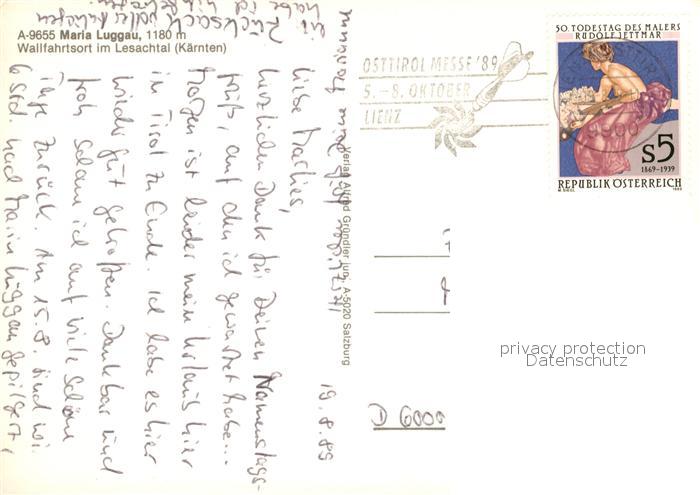 A-9655 Maria Luggau, 1180 m
Wallfahrtsort im Lesachtal (Kärnten)
19.8.89
herzlichen Dank für Deinen Namenstags-
gruß, auf den ich gewartet habe...
Morgen ist leider mein Urlaub hier
in Tirol zu Ende. Ich habe es hier
wieder gut getroffen. Dankbar und
froh schau ich auf viele schöne
Tage zurück. Am 15.8. sind wir
6 Std. nach Maria Luggau gepilgert,
Verlag Alfred Gründler jun., A-5020 Salzburg
OSTTIROL MESSE '89
5.-8. OKTOBER
LIENZ
50. TODESTAG DES MALERS
RUDOLF JETTMAR
S5
1869-1939
REPUBLIK ÖSTERREICH
D 6000
privacy protection
Datenschutz